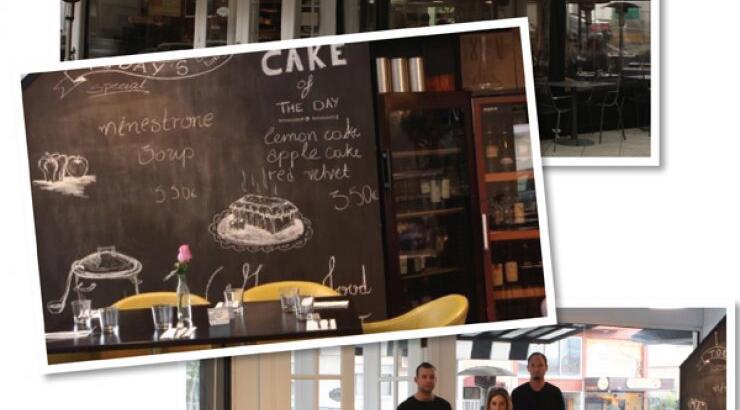 TODAY'S
special
minestrone
Soup
550€
CAKE
of
THE DAY
lemon cake
apple cake
red velvet
350€